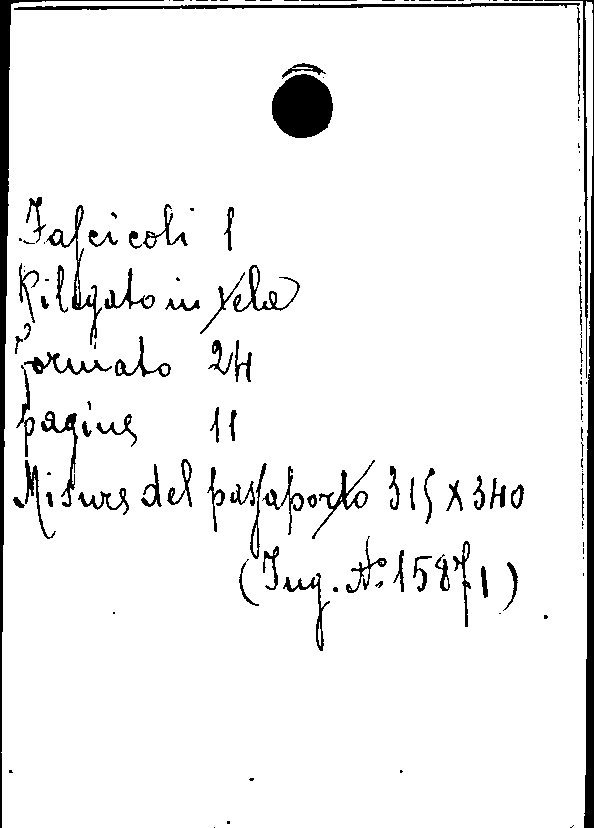 Fascicoli 1
Rilegato in tela
formato 24
pagine 11
Misure del passaporto 315 X 340
(Ing. N° 15871)